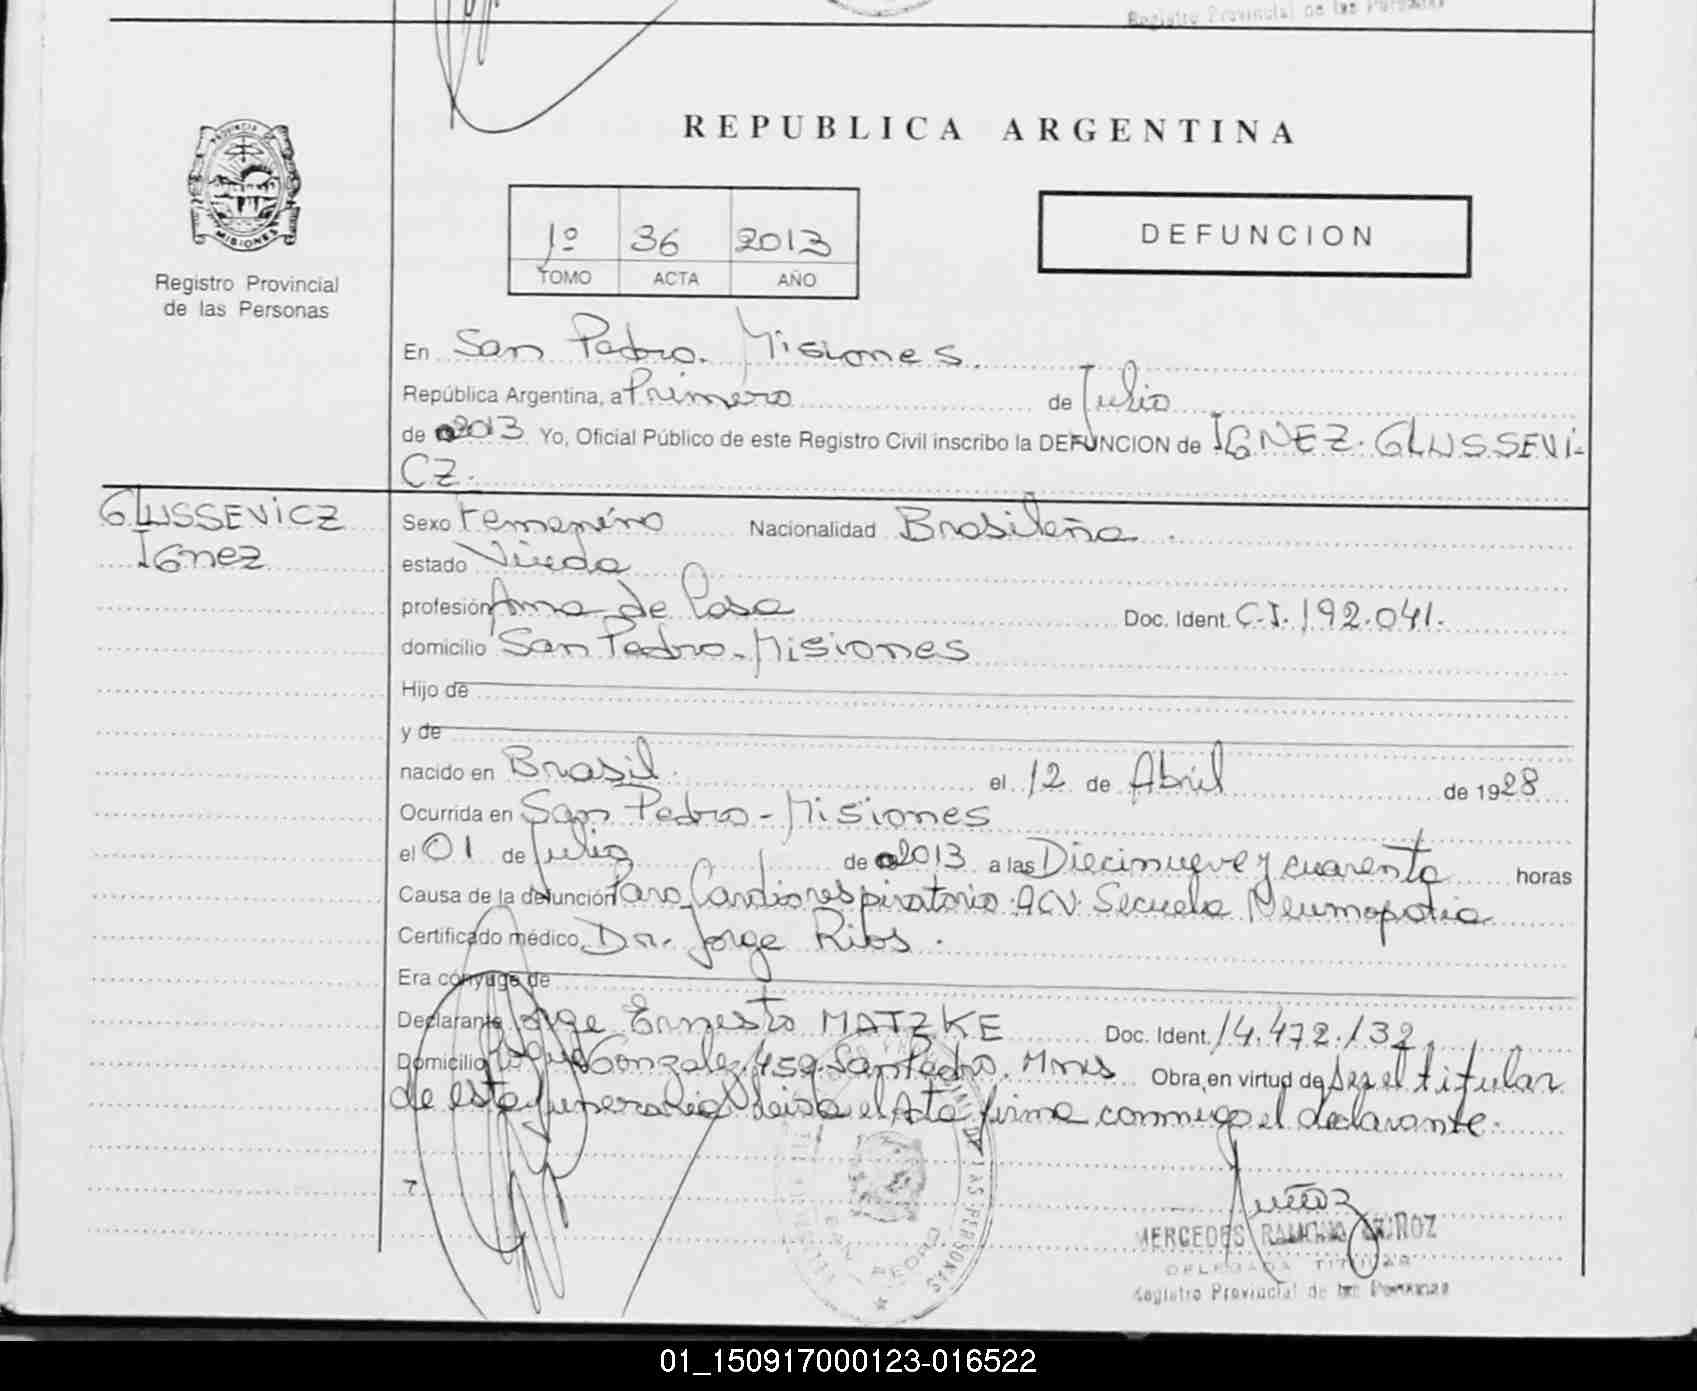 Registro Provincial de las Personas
REPUBLICA ARGENTINA
PROVINCIA DE
MISIONES
Registro Provincial
de las Personas
1º 36 2013
TOMO ACTA AÑO
DEFUNCION
En San Pedro. Misiones.
República Argentina, a Primero de Julio
de 2013 Yo, Oficial Público de este Registro Civil inscribo la DEFUNCION de IGNEZ. GLUSSEVI-
CZ.
GLUSSEVICZ
IGnez
Sexo Femenino Nacionalidad Brasileña.
estado Viuda
profesión Ama de Casa Doc. Ident. C.I. 192.041.
domicilio San Pedro. Misiones
Hijo de
y de
nacido en Brasil. el 12 de Abril de 1928
Ocurrida en San Pedro - Misiones
el 01 de Julio de 2013 a las Diecinueve y cuarenta horas
Causa de la defunción Paro Cardiorespiratorio. ACV. Secuela Neumopatia
Certificado médico Dr. Jorge Rios.
Era cónyuge de
Declarante Jorge Ernesto MATZKE Doc. Ident. 14.472.132.
Domicilio Roque Gonzalez 459. San Pedro. Mnes Obra en virtud de Ser el titular
de esta funeraria leida el Acta firma conmigo el declarante.
SAN PEDRO
LAS PERSONAS
MERCEDES RAMONA MUÑOZ
DELEGADA TITULAR
Registro Provincial de las Personas
01_150917000123-016522